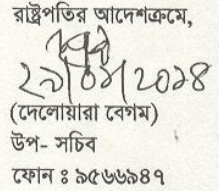 রাষ্ট্রপতির আদেশক্রমে,
(দেলোয়ারা বেগম)
উপ- সচিব
ফোন ঃ ৯৫৬৬৯৪৭